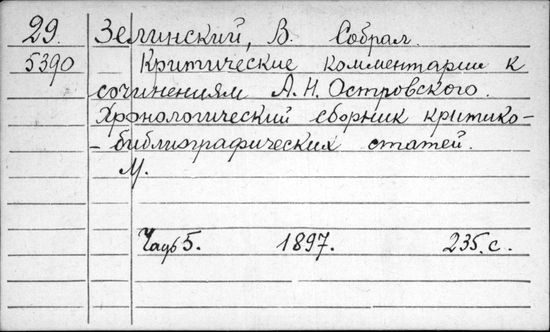 29. Зелинский, В. Собрал.
5390 Критические комментарии к
сочинениям А.Н. Островского.
Хронологический сборник критико-
-библиографических статей.
М.
Часть 5. 1897. 235 с.